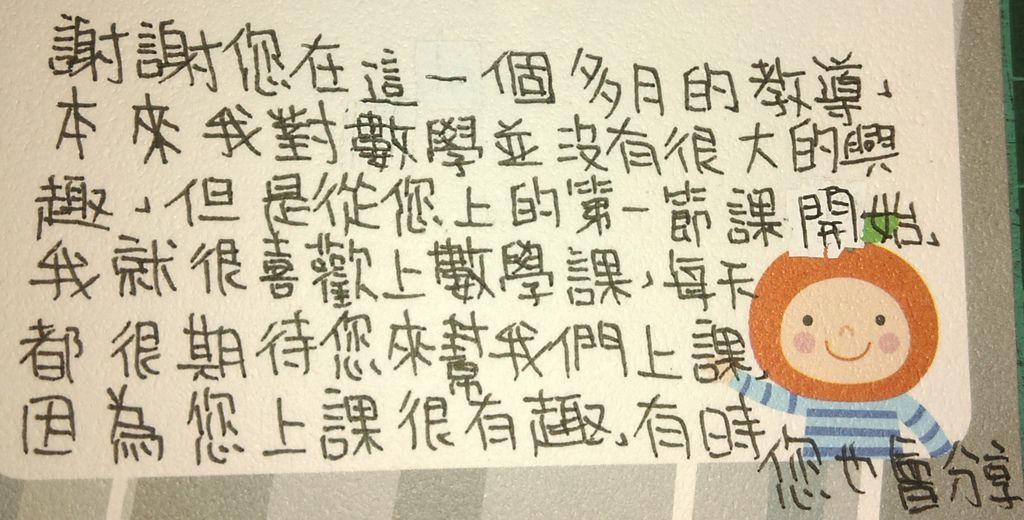 謝謝您在這一個多月的教導,
本來我對數學並沒有很大的興
趣,但是從您上的第一節課開始,
我就很喜歡上數學課,每天
都很期待您來幫我們上課,
因為您上課很有趣,有時
您也會分享